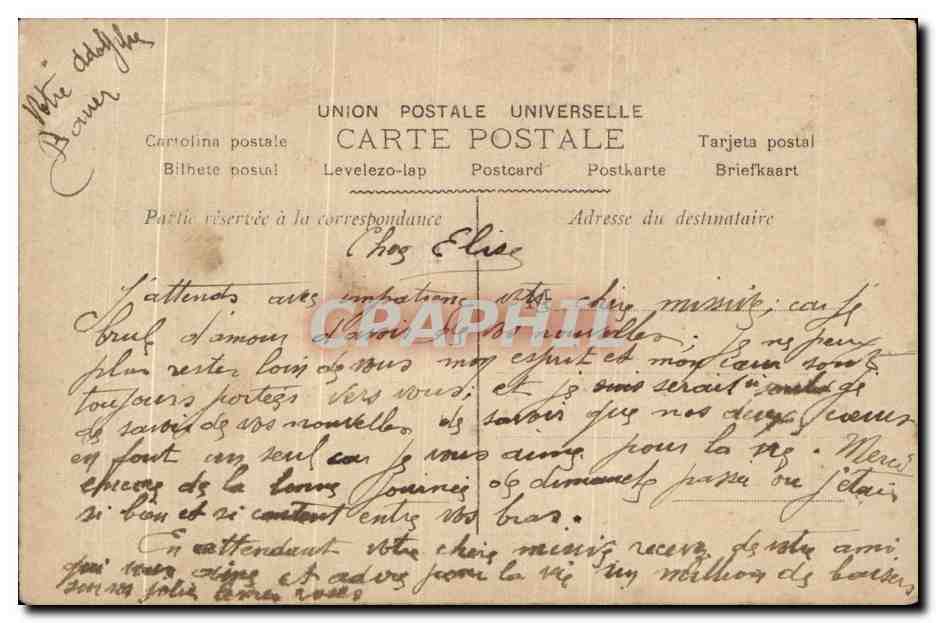 Votre Adolphe
Bauer
UNION POSTALE UNIVERSELLE
CARTE POSTALE
Cartolina postale Tarjeta postal
Bilhete postal Levelezo-lap Postcard Postkarte Briefkaart
Partie réservée à la correspondance Adresse du destinataire
Cher Elise
J'attends avec impatience votre chère missive, car je
brule d'amour d'avoir de vos nouvelles; je ne peux
plus rester loin de vous mon esprit et mon cœur sont
toujours portés vers vous; et je serait de
de savoir de vos nouvelles de savoir que nos deux cœurs
en font un seul car je vous aime pour la vie. Merci
encore de la bonne journée de dimanche passé ou j'étais
si bien et si content entre vos bras.
En attendant votre chère missive recevez de votre ami
qui vous aime et adore pour la vie un million de baisers
sur vos jolies levres roses
CPAPHIL